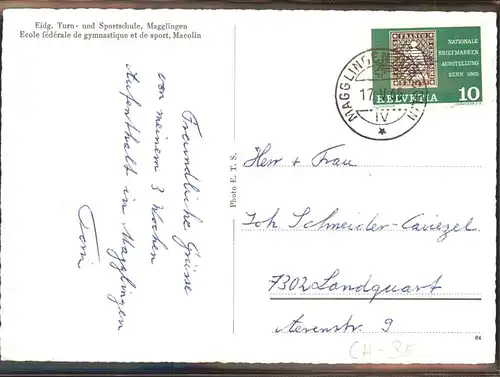 Eidg. Turn- und Sportschule, Magglingen
Ecole fédérale de gymnastique et de sport, Macolin
Freundliche Grüsse
von meinem 3 Wochen
Aufenthalt in Magglingen
Photo E. T. S.
NATIONALE
BRIEFMARKEN
AUSSTELLUNG
BERN 1965
FRANCO
HELVETIA 10
MAGGLINGEN
17. V.
IV
Herr + Frau
Joh. Schneider-Caviezel
7302 Landquart
Aerenstr. 9
64
CH-BE